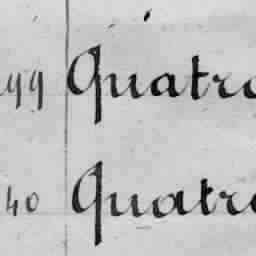 99 Quatre
40 Quatre